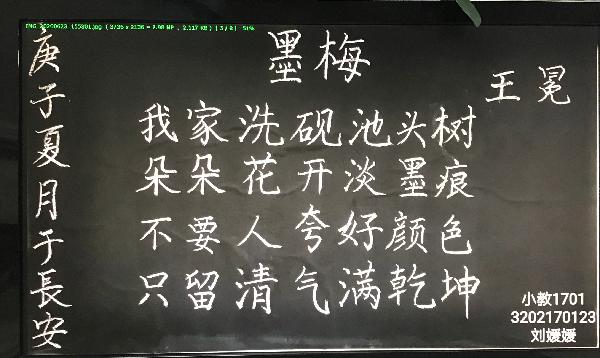 IMG_20200623_155801.jpg ( 3736 x 2136 = 7.98 MP , 2.117 KB ) [ 3 / 8 ] 51%
墨梅
王冕
我家洗砚池头树
朵朵花开淡墨痕
不要人夸好颜色
只留清气满乾坤
庚子夏月于長安
小教1701
3202170123
刘媛媛